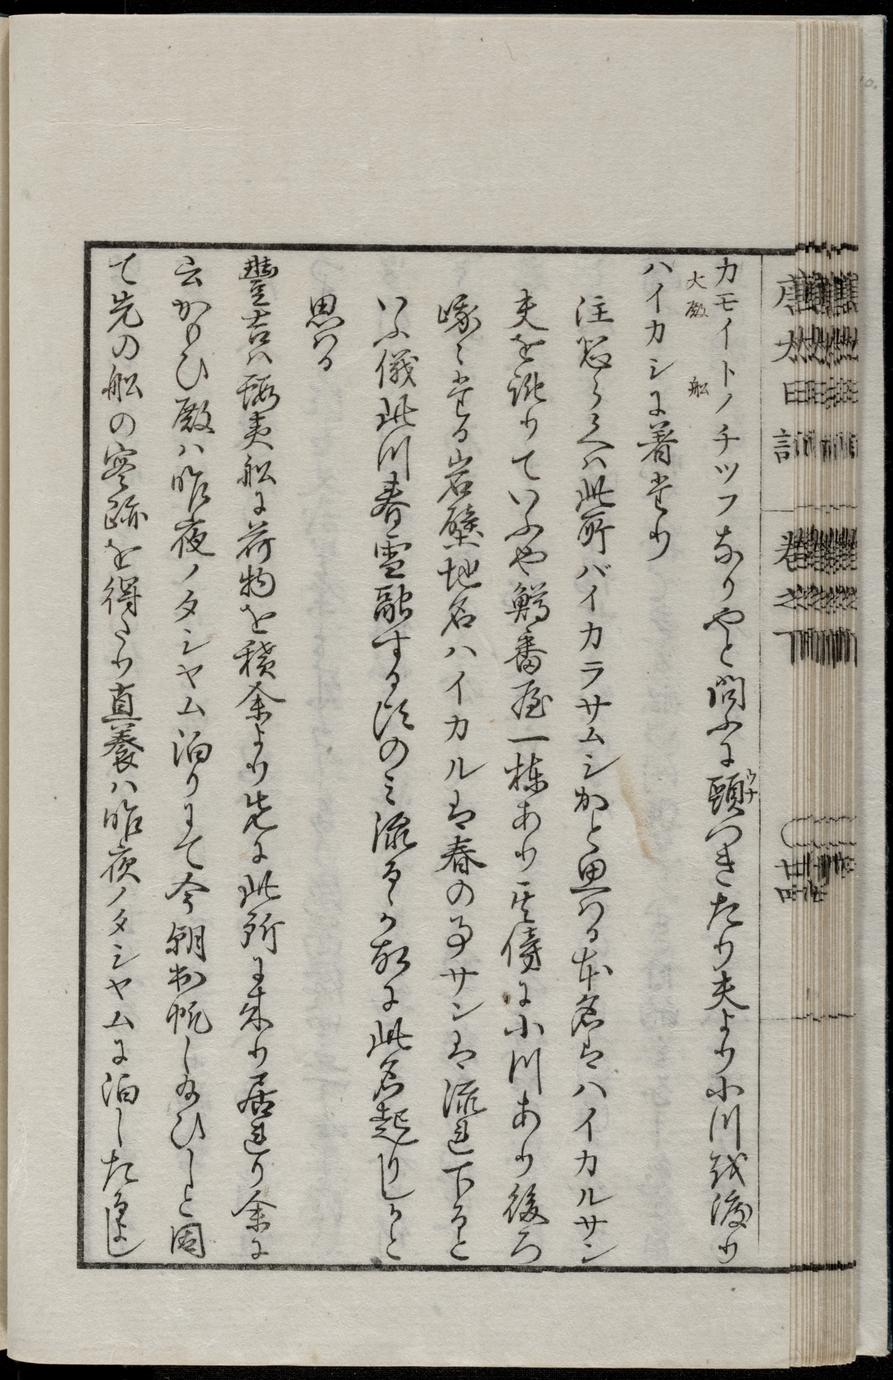 唐太日記 卷之下
カモイトノチツフなりやと問ふに頭つきたり夫より小川を渡り
ウナ
大殿 船
ハイカシに着せり
注 此所バイカラサムシかと思はる本名はハイカルサン
夫を訛りていふや鱒番屋一棟あり其傍に小川あり後ろ
峨々たる岩壁地名ハイカルは春の事サンは流れ下ると
いふ儀此川春雪融する頃のみ流るゝ故に此名起りしかと
思はる
豊吉は蝦夷船に荷物を積余より先に此所に来り居れり余に
云かもひ殿は昨夜ノタシヤム泊りにて今朝出帆し給ひしと因
て先の船の実跡を得たり直養は昨夜ノタシヤムに泊したるよし